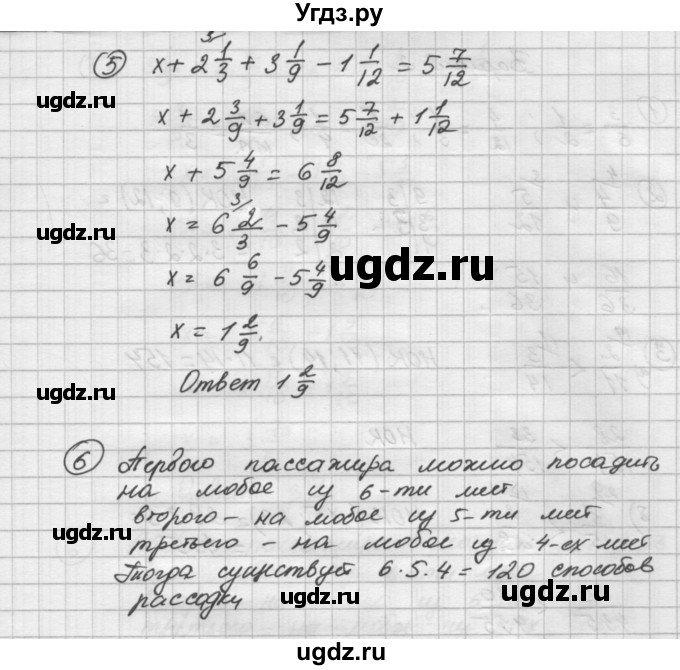 Угдз.ру
⑤ x + 2 1/3 + 3 1/9 − 1 1/12 = 5 7/12
x + 2 3/9 + 3 1/9 = 5 7/12 + 1 1/12
x + 5 4/9 = 6 8/12
x = 6 2/3 − 5 4/9
x = 6 6/9 − 5 4/9
x = 1 2/9.
Ответ 1 2/9
⑥ Первого пассажира можно посадить
на любое из 6-ти мест
второго – на любое из 5-ти мест
третьего – на любое из 4-ех мест
Тогда существует 6·5·4 = 120 способов
рассадки
ugdz.ru
ugdz.ru
ugdz.ru
ugdz.ru
ugdz.ru
ugdz.ru
ugdz.ru
ugdz.ru
ugdz.ru
ugdz.ru
ugdz.ru
ugdz.ru
Угдз.ру